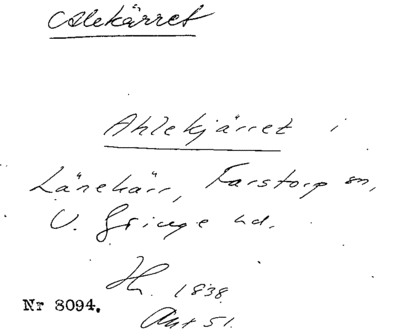 Alekärret
Ahlekjärret i
Länekärr, Farstorp sn,
V. Göinge hd.
Hn. 1838.
Akt 51.
Nr 8094.